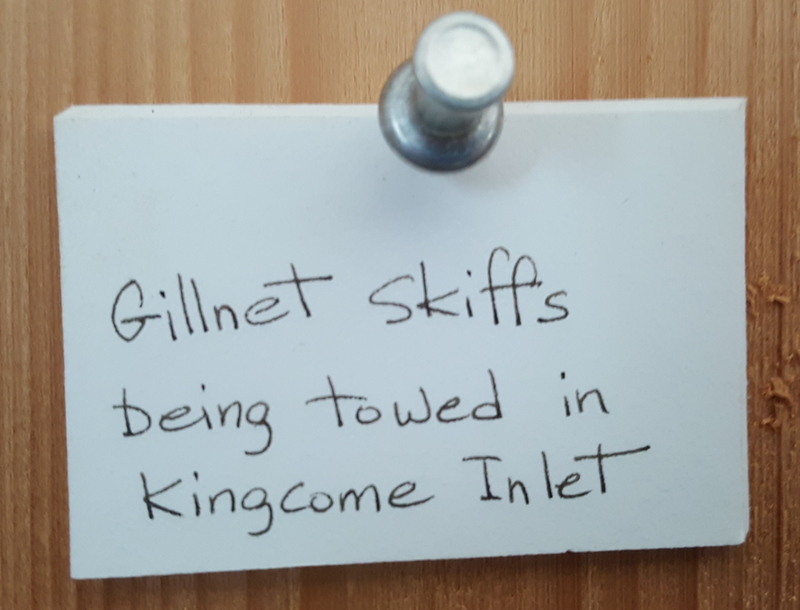 Gillnet Skiffs
being towed in
Kingcome Inlet